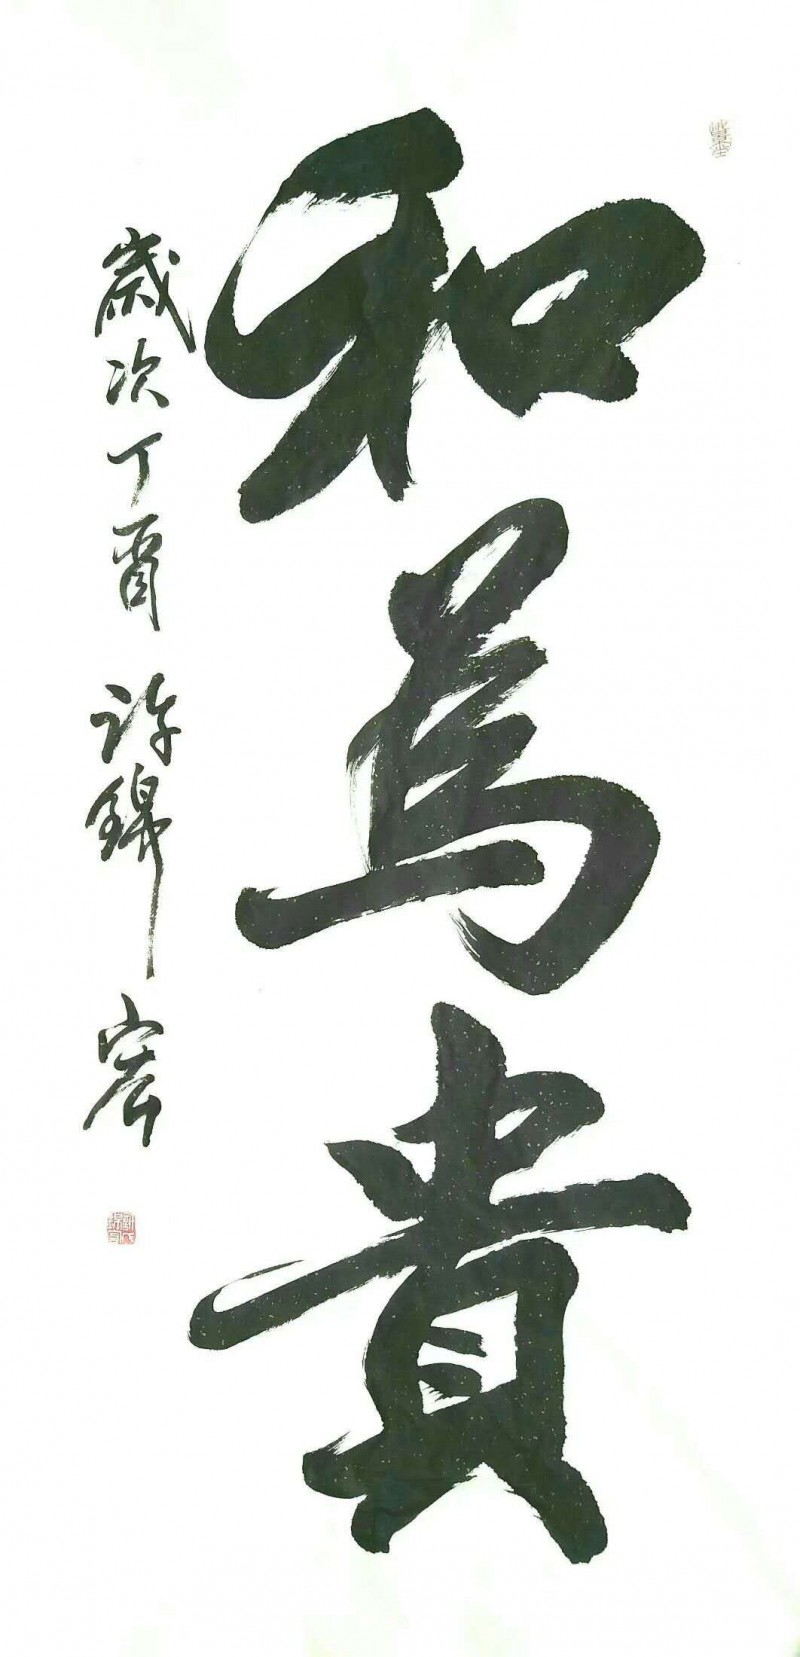 和為貴
歲次丁酉 許錦宏